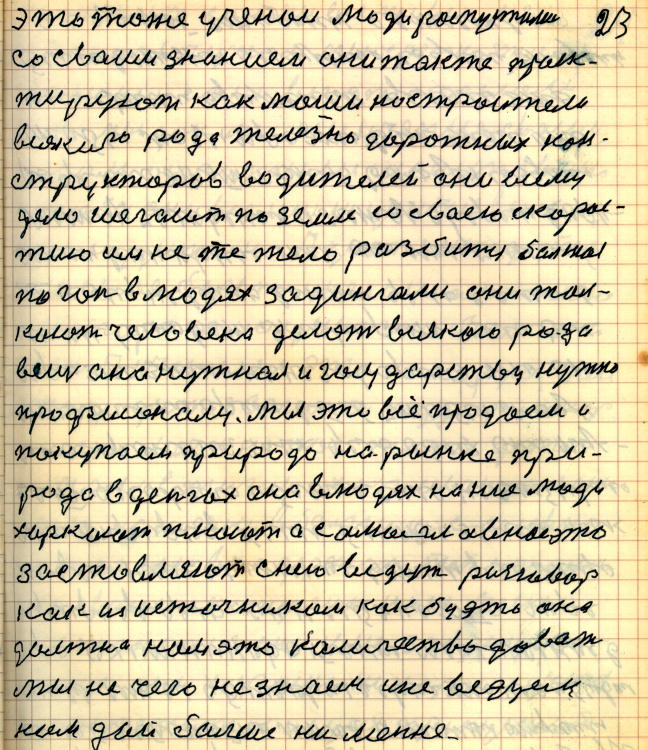 это тоже ученои люди распустили 23
со своим знанием они также проек-
тируют как машиностроители
всякого рода железно дорожных кон-
структоров водителей они всему
дело шегают по земли со своею скорос-
тию им не те жело разбити большая
погоп в людях за дингами они тол-
кают человека делат всякого рода
вещ ана нужная и государству нужно
профсионалу. мы это всё продаем и
покупаем природо на рынке при-
рода в денгах ана в людях на ние люди
харкают плюют а самое главное это
застовляют с нею ведут разговор
как из источником как будто она
должна нам это количество доват
мы не чего не знаем и не ведуем
нам дай болше ни менне.